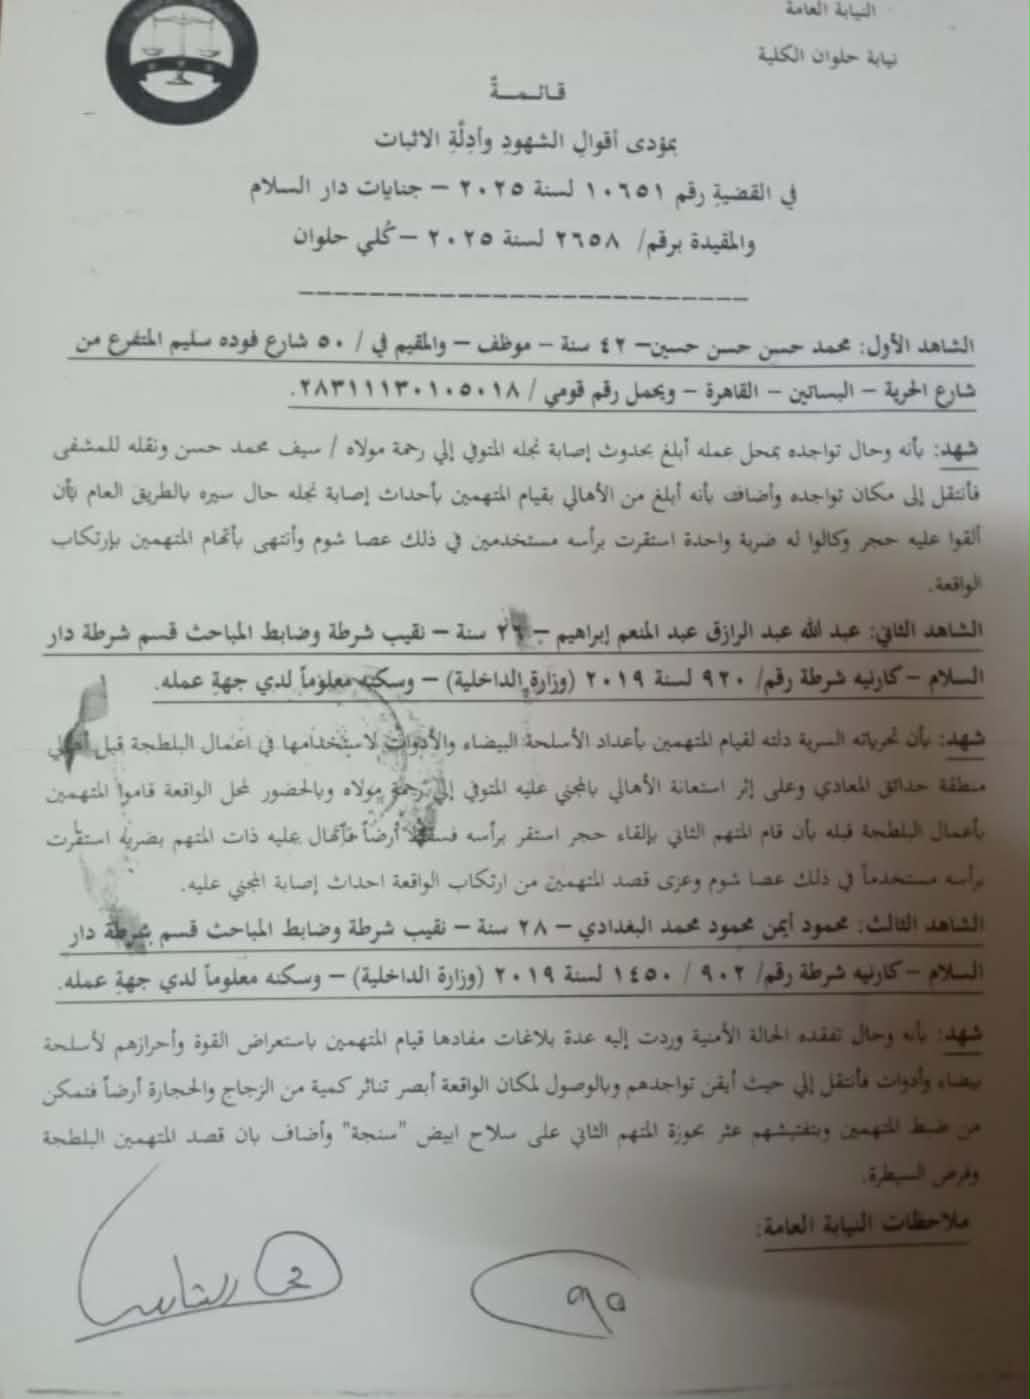 النيابة العامة
نيابة حلوان الكلية
قائمةٌ
بمؤدى أقوالِ الشهودِ وأدِلَّةِ الاثبات
في القضيةِ رقم ١٠٦٥١ لسنة ٢٠٢٥ – جنايات دار السلام
والمقيدة برقم/ ٢٦٥٨ لسنة ٢٠٢٥ –كُلي حلوان
الشاهد الأول: محمد حسن حسن حسين– ٤٢ سنة – موظف – والمقيم في / ٥٠ شارع فوده سليم المتفرع من
شارع الحرية – البساتين – القاهرة – ويحمل رقم قومي / ٢٨٣١١١٣٠١٠٥٠١٨.
شهد: بأنه وحال تواجده بمحل عمله أبلغ بحدوث إصابة نجله المتوفي إلي رحمة مولاه / سيف محمد حسن ونقله للمشفى
فأنتقل إلى مكان تواجده وأضاف بأنه أبلغ من الأهالي بقيام المتهمين بأحداث إصابة نجله حال سيره بالطريق العام بأن
ألقوا عليه حجر وكالوا له ضربة واحدة استقرت برأسه مستخدمين في ذلك عصا شوم وأنتهى بأتهام المتهمين بإرتكاب
الواقعة.
الشاهد الثاني: عبد الله عبد الرازق عبد المنعم إبراهيم – ٢٦ سنة – نقيب شرطة وضابط المباحث قسم شرطة دار
السلام –كارنيه شرطة رقم/ ٩٢٠ لسنة ٢٠١٩ (وزارة الداخلية) – وسكنه معلوماً لدي جهةِ عمله.
شهد: بأن تحرياته السرية دلته لقيام المتهمين بأعداد الأسلحة البيضاء والأدوات لاستخدامها في اعمال البلطجة قبل أهالي
منطقة حدائق المعادي وعلى إثر استعانة الأهالي بالمجني عليه المتوفي إلي رحمة مولاه وبالحضور لمحل الواقعة قاموا المتهمين
بأعمال البلطجة قبله بأن قام المتهم الثاني بإلقاء حجر استقر برأسه فسقط أرضاً فأنهال عليه ذات المتهم بضربه استقرت
برأسه مستخدماً في ذلك عصا شوم وعزى قصد المتهمين من ارتكاب الواقعة احداث إصابة المجني عليه.
الشاهد الثالث: محمود أيمن محمود محمد البغدادي – ٢٨ سنة – نقيب شرطة وضابط المباحث قسم شرطة دار
السلام –كارنيه شرطة رقم/ ٩٠٢ / ١٤٥٠ لسنة ٢٠١٩ (وزارة الداخلية) – وسكنه معلوماً لدي جهةِ عمله.
شهد: بأنه وحال تفقده الحالة الأمنية وردت إليه عدة بلاغات مفادها قيام المتهمين باستعراض القوة وأحرازهم لأسلحة
بيضاء وأدوات فأنتقل إلي حيث أيقن تواجدهم وبالوصول لمكان الواقعة أبصر تناثر كمية من الزجاج والحجارة أرضاً فتمكن
من ضبط المتهمين وبتفتيشهم عثر بحوزة المتهم الثاني على سلاح ابيض "سنجة" وأضاف بان قصد المتهمين البلطجة
وفرض السيطرة.
ملاحظات النيابة العامة: